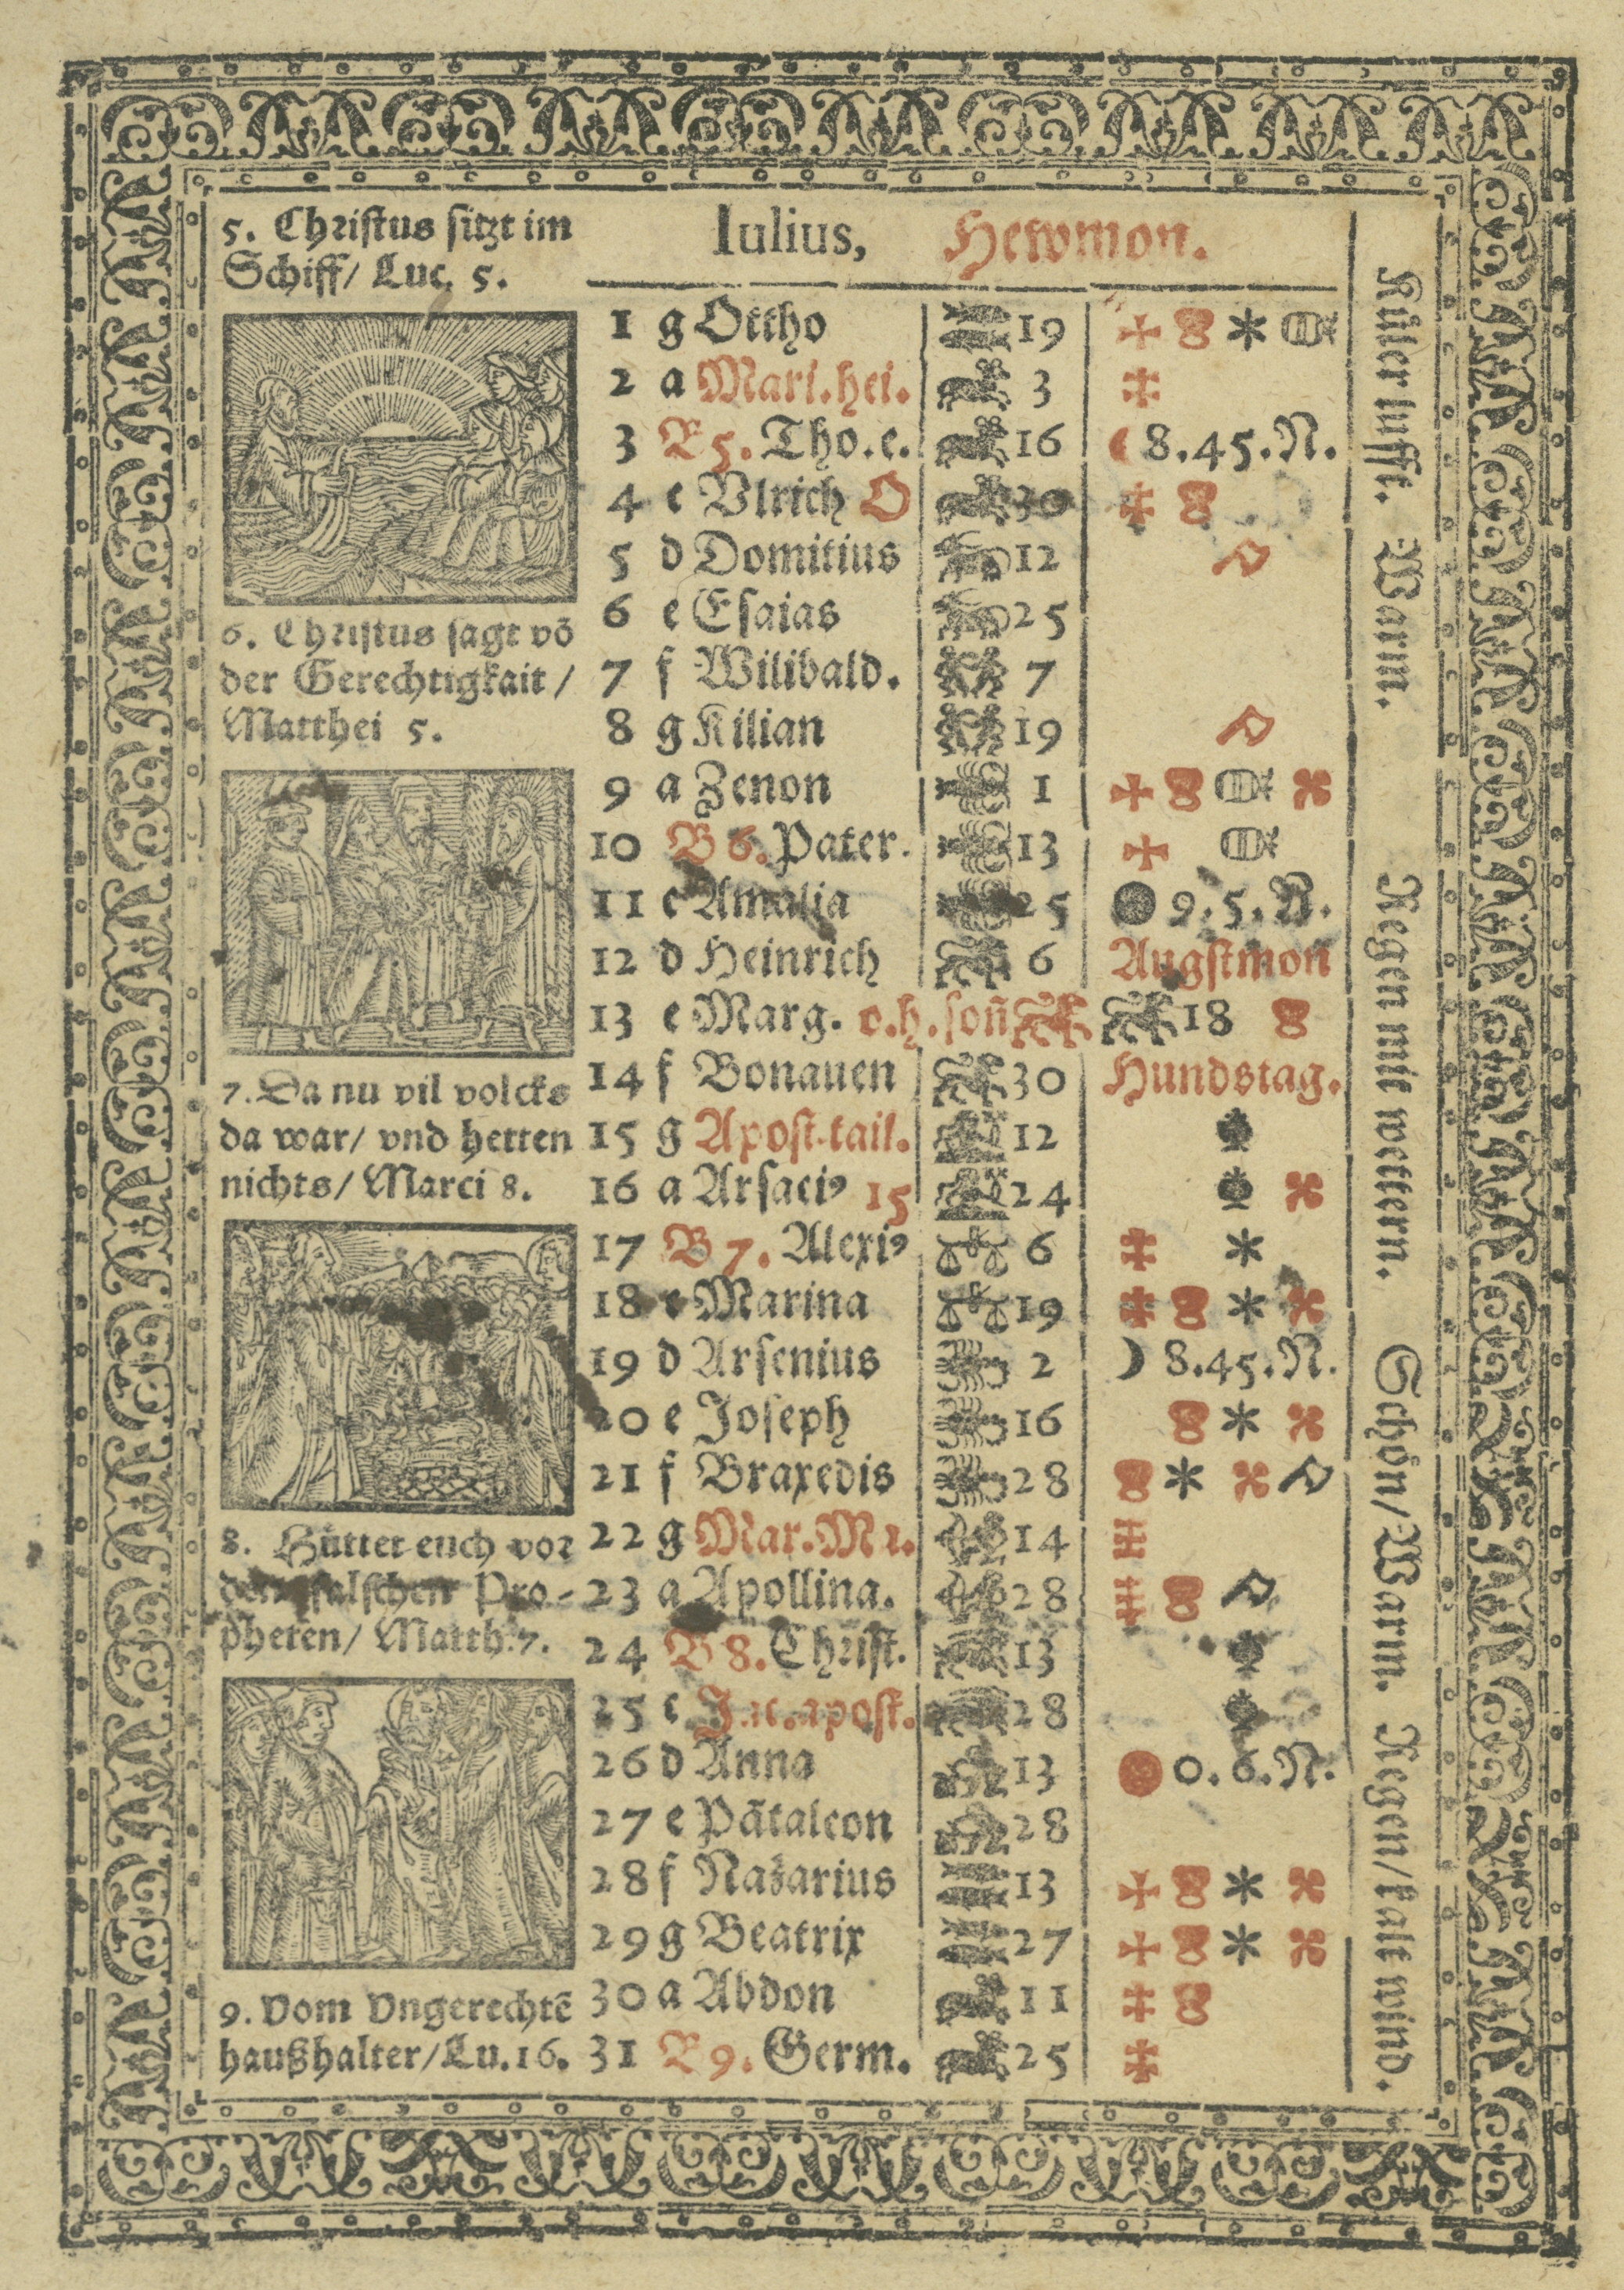 5. Christus sitzt im
Schiff/ Luc. 5.
6. Christus sagt võ
der Gerechtigkait/
Matthei 5.
7. Da nu vil volcks
da war/ vnd hetten
nichts/ Marci 8.
8. Hüttet euch vor
den falschen Pro-
pheten/ Matth. 7.
9. Vom Vngerechtẽ
haußhalter/Lu. 16.
Iulius, Hewmon.
1 g Ottho 19
2 a Mari. hei. 3
3 B 5. Tho. e. 16 8.45. N.
4 c Vlrich O 30
5 d Domitius 12
6 e Esaias 25
7 f Wilibald. 7
8 g Kilian 19
9 a Zenon 1
10 B 6. Pater. 13
11 c Amalia 25 9.5. N.
12 d Heinrich 6 Augstmon
13 e Marg. o. h. soñ 18
14 f Bonauen 30 Hundstag.
15 g Apost. tail. 12
16 a Arsaciꝰ 15 24
17 B 7. Alexiꝰ 6
18 c Marina 19
19 d Arsenius 2 8.45. N.
20 e Joseph 16
21 f Braxedis 28
22 g Mar. M 1. 14
23 a Apollina. 28
24 B 8. Christ. 13
25 c apost. 28
26 d Anna 13 0.6. N.
27 e Pãtaleon 28
28 f Nazarius 13
29 g Beatrix 27
30 a Abdon 11
31 B 9. Germ. 25
Küler lufft. Warm. Regen mit wettern. Schön/Warm. Regen/kalt wind.